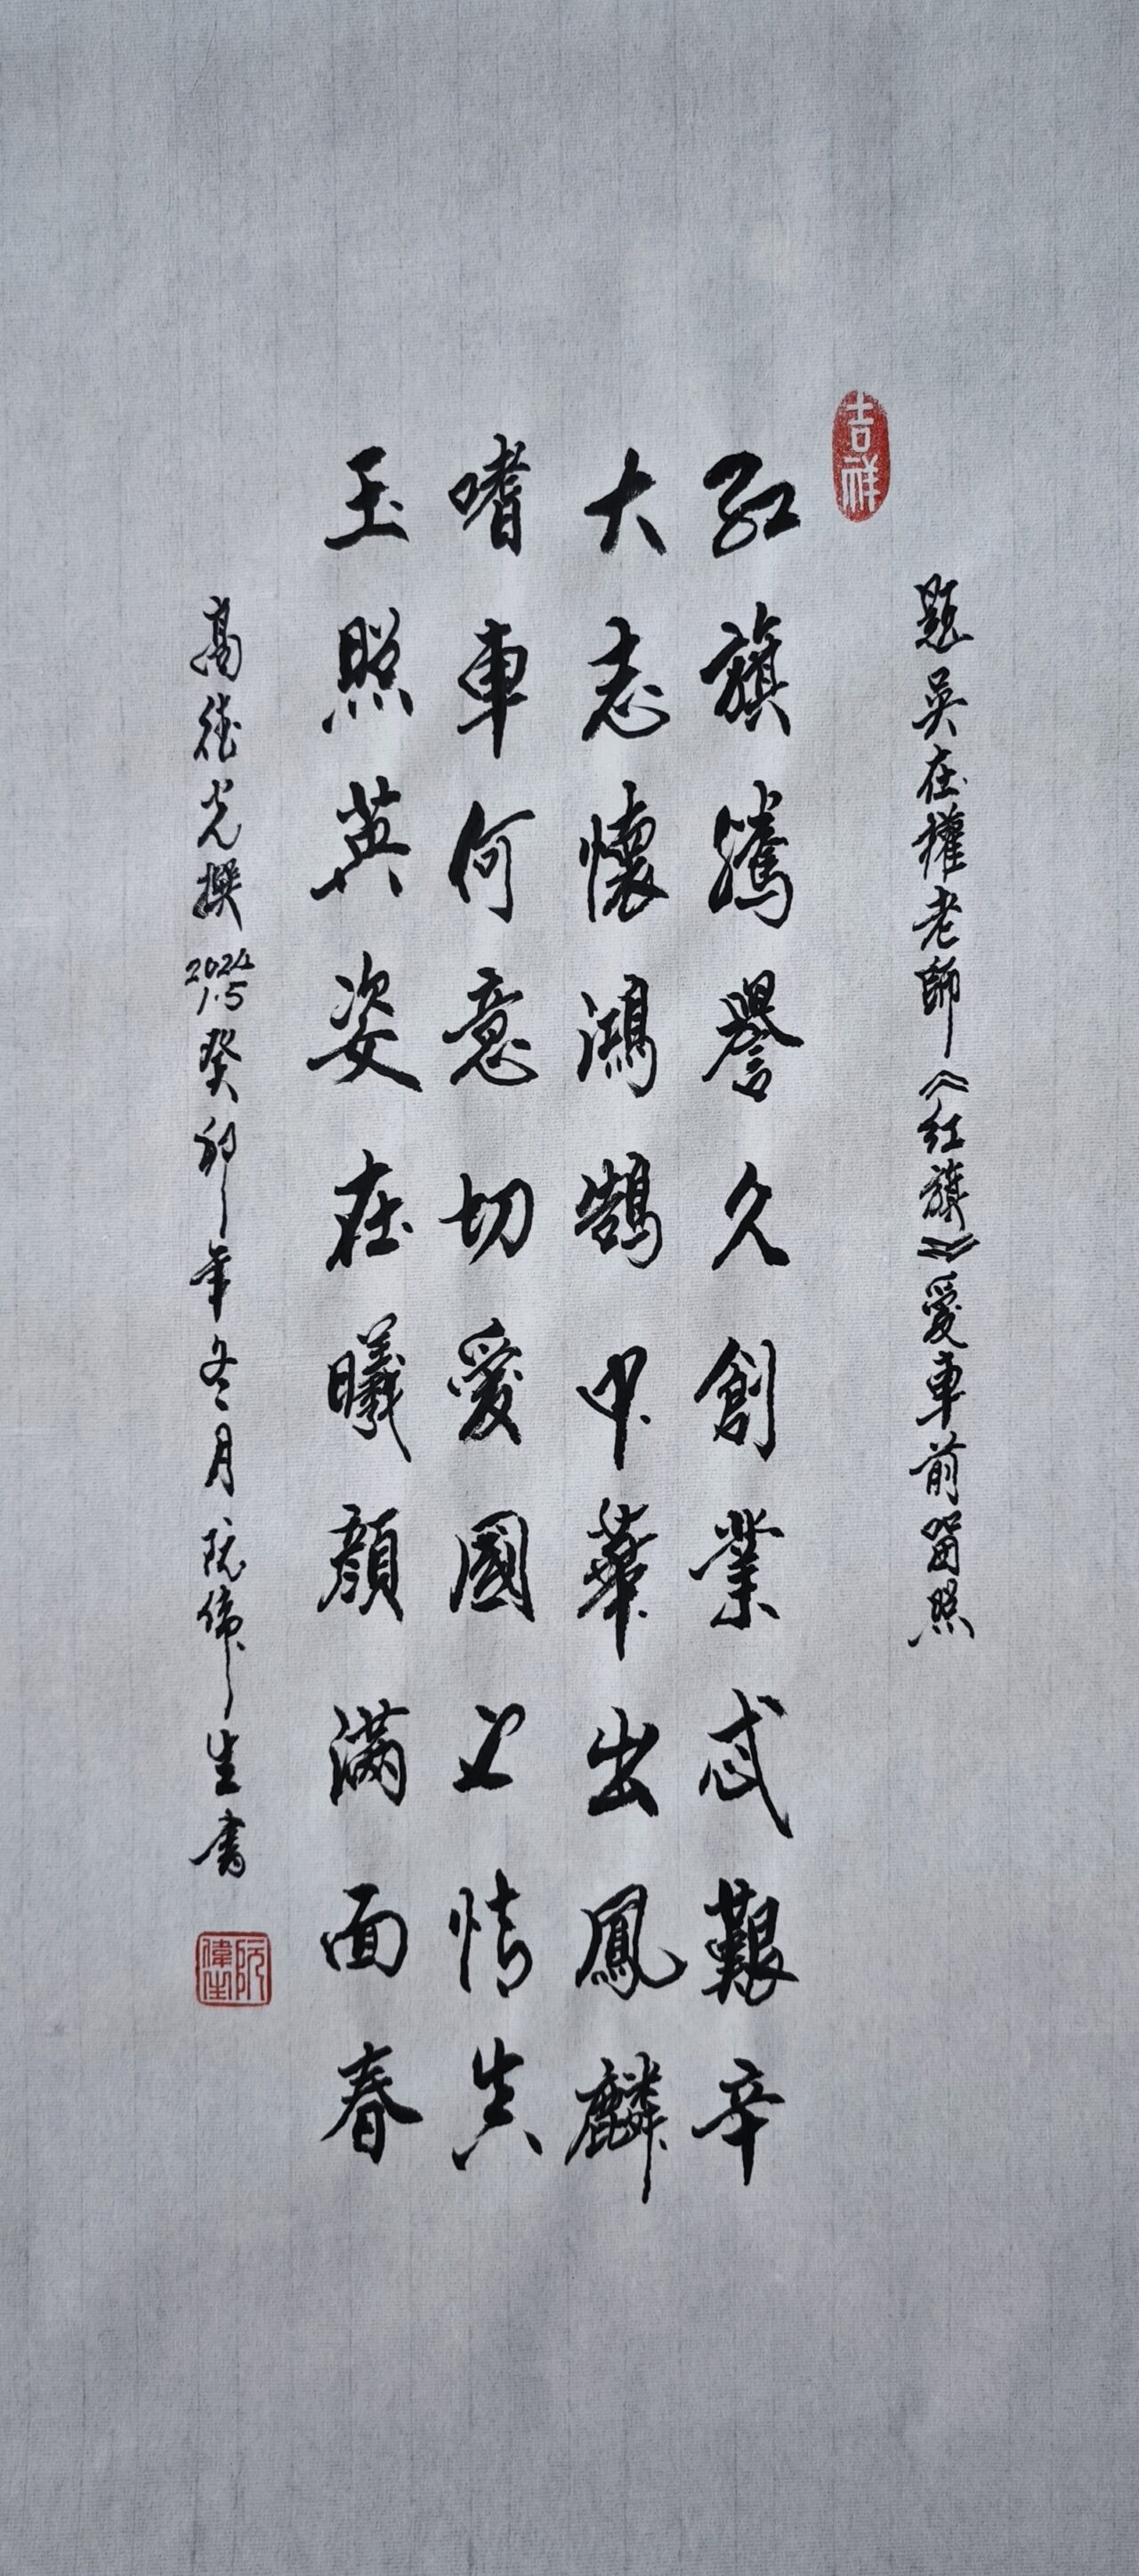 吉祥
題吳在權老師《紅旗》愛車前留照
紅旗騰譽久創業忒艱辛
大志懷鴻鵠中華出鳳麟
嗜車何意切愛國之情真
玉照英姿在曦顏滿面春
高德光撰2024 1.5癸卯年冬月阮偉生書
阮偉生